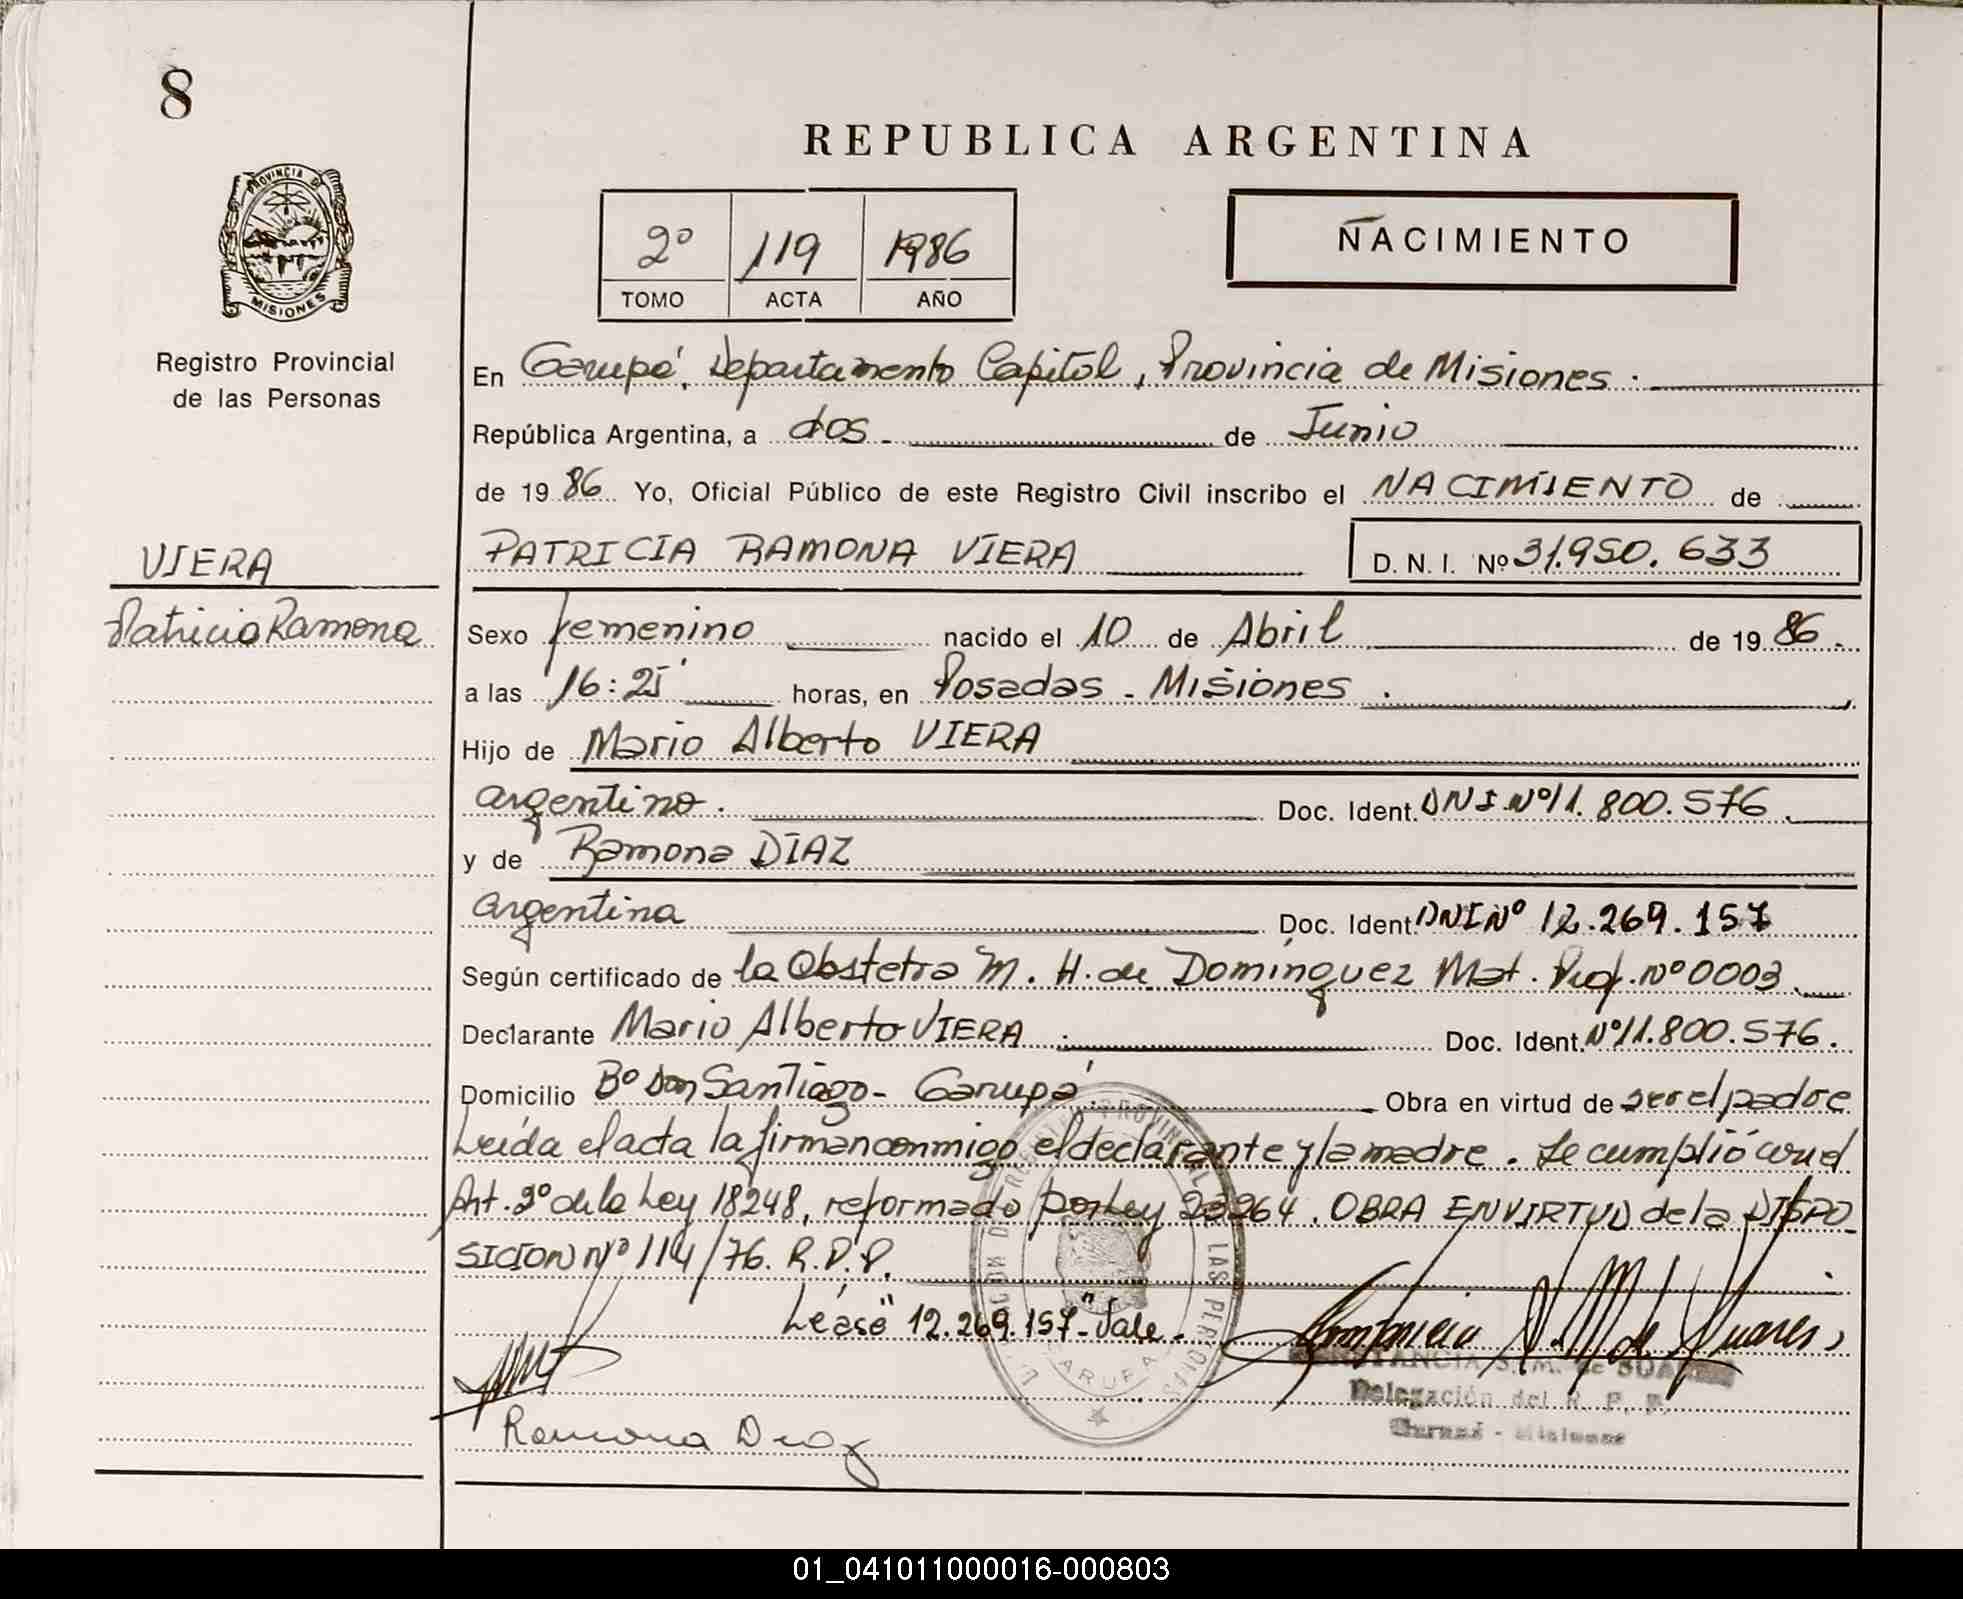 8
REPUBLICA ARGENTINA
PROVINCIA DE
MISIONES
2º 119 1986
TOMO ACTA AÑO
NACIMIENTO
Registro Provincial
de las Personas
En Garupá, Departamento Capital, Provincia de Misiones.
República Argentina, a dos de Junio
de 1986 Yo, Oficial Público de este Registro Civil inscribo el NACIMIENTO de
VIERA
PATRICIA RAMONA VIERA D. N. I. Nº 31.950.633
Patricia Ramona
Sexo femenino nacido el 10 de Abril de 1986.
a las 16:25' horas, en Posadas - Misiones.
Hijo de Mario Alberto VIERA
argentino. Doc. Ident. DNI Nº 11.800.576
y de Ramona DIAZ
argentina Doc. Ident. DNI Nº 12.269.157
Según certificado de la Obstetra M. H. de Dominguez Mat. Prof. Nº 0003.
Declarante Mario Alberto VIERA Doc. Ident. Nº 11.800.576.
Domicilio Bº Don Santiago - Garupá. Obra en virtud de ser el padre
Leída el acta la firman conmigo el declarante y la madre. Se cumplió con el
Art. 2º de la Ley 18248, reformado por Ley 23264. OBRA EN VIRTUD de la DISPO-
SICION Nº 114/76. R.P.P.
Léase "12.269.157" Vale -
Ramona Diaz
S. M. de SUAREZ
Delegación del R. P. P.
Garupá - Misiones
01_041011000016-000803